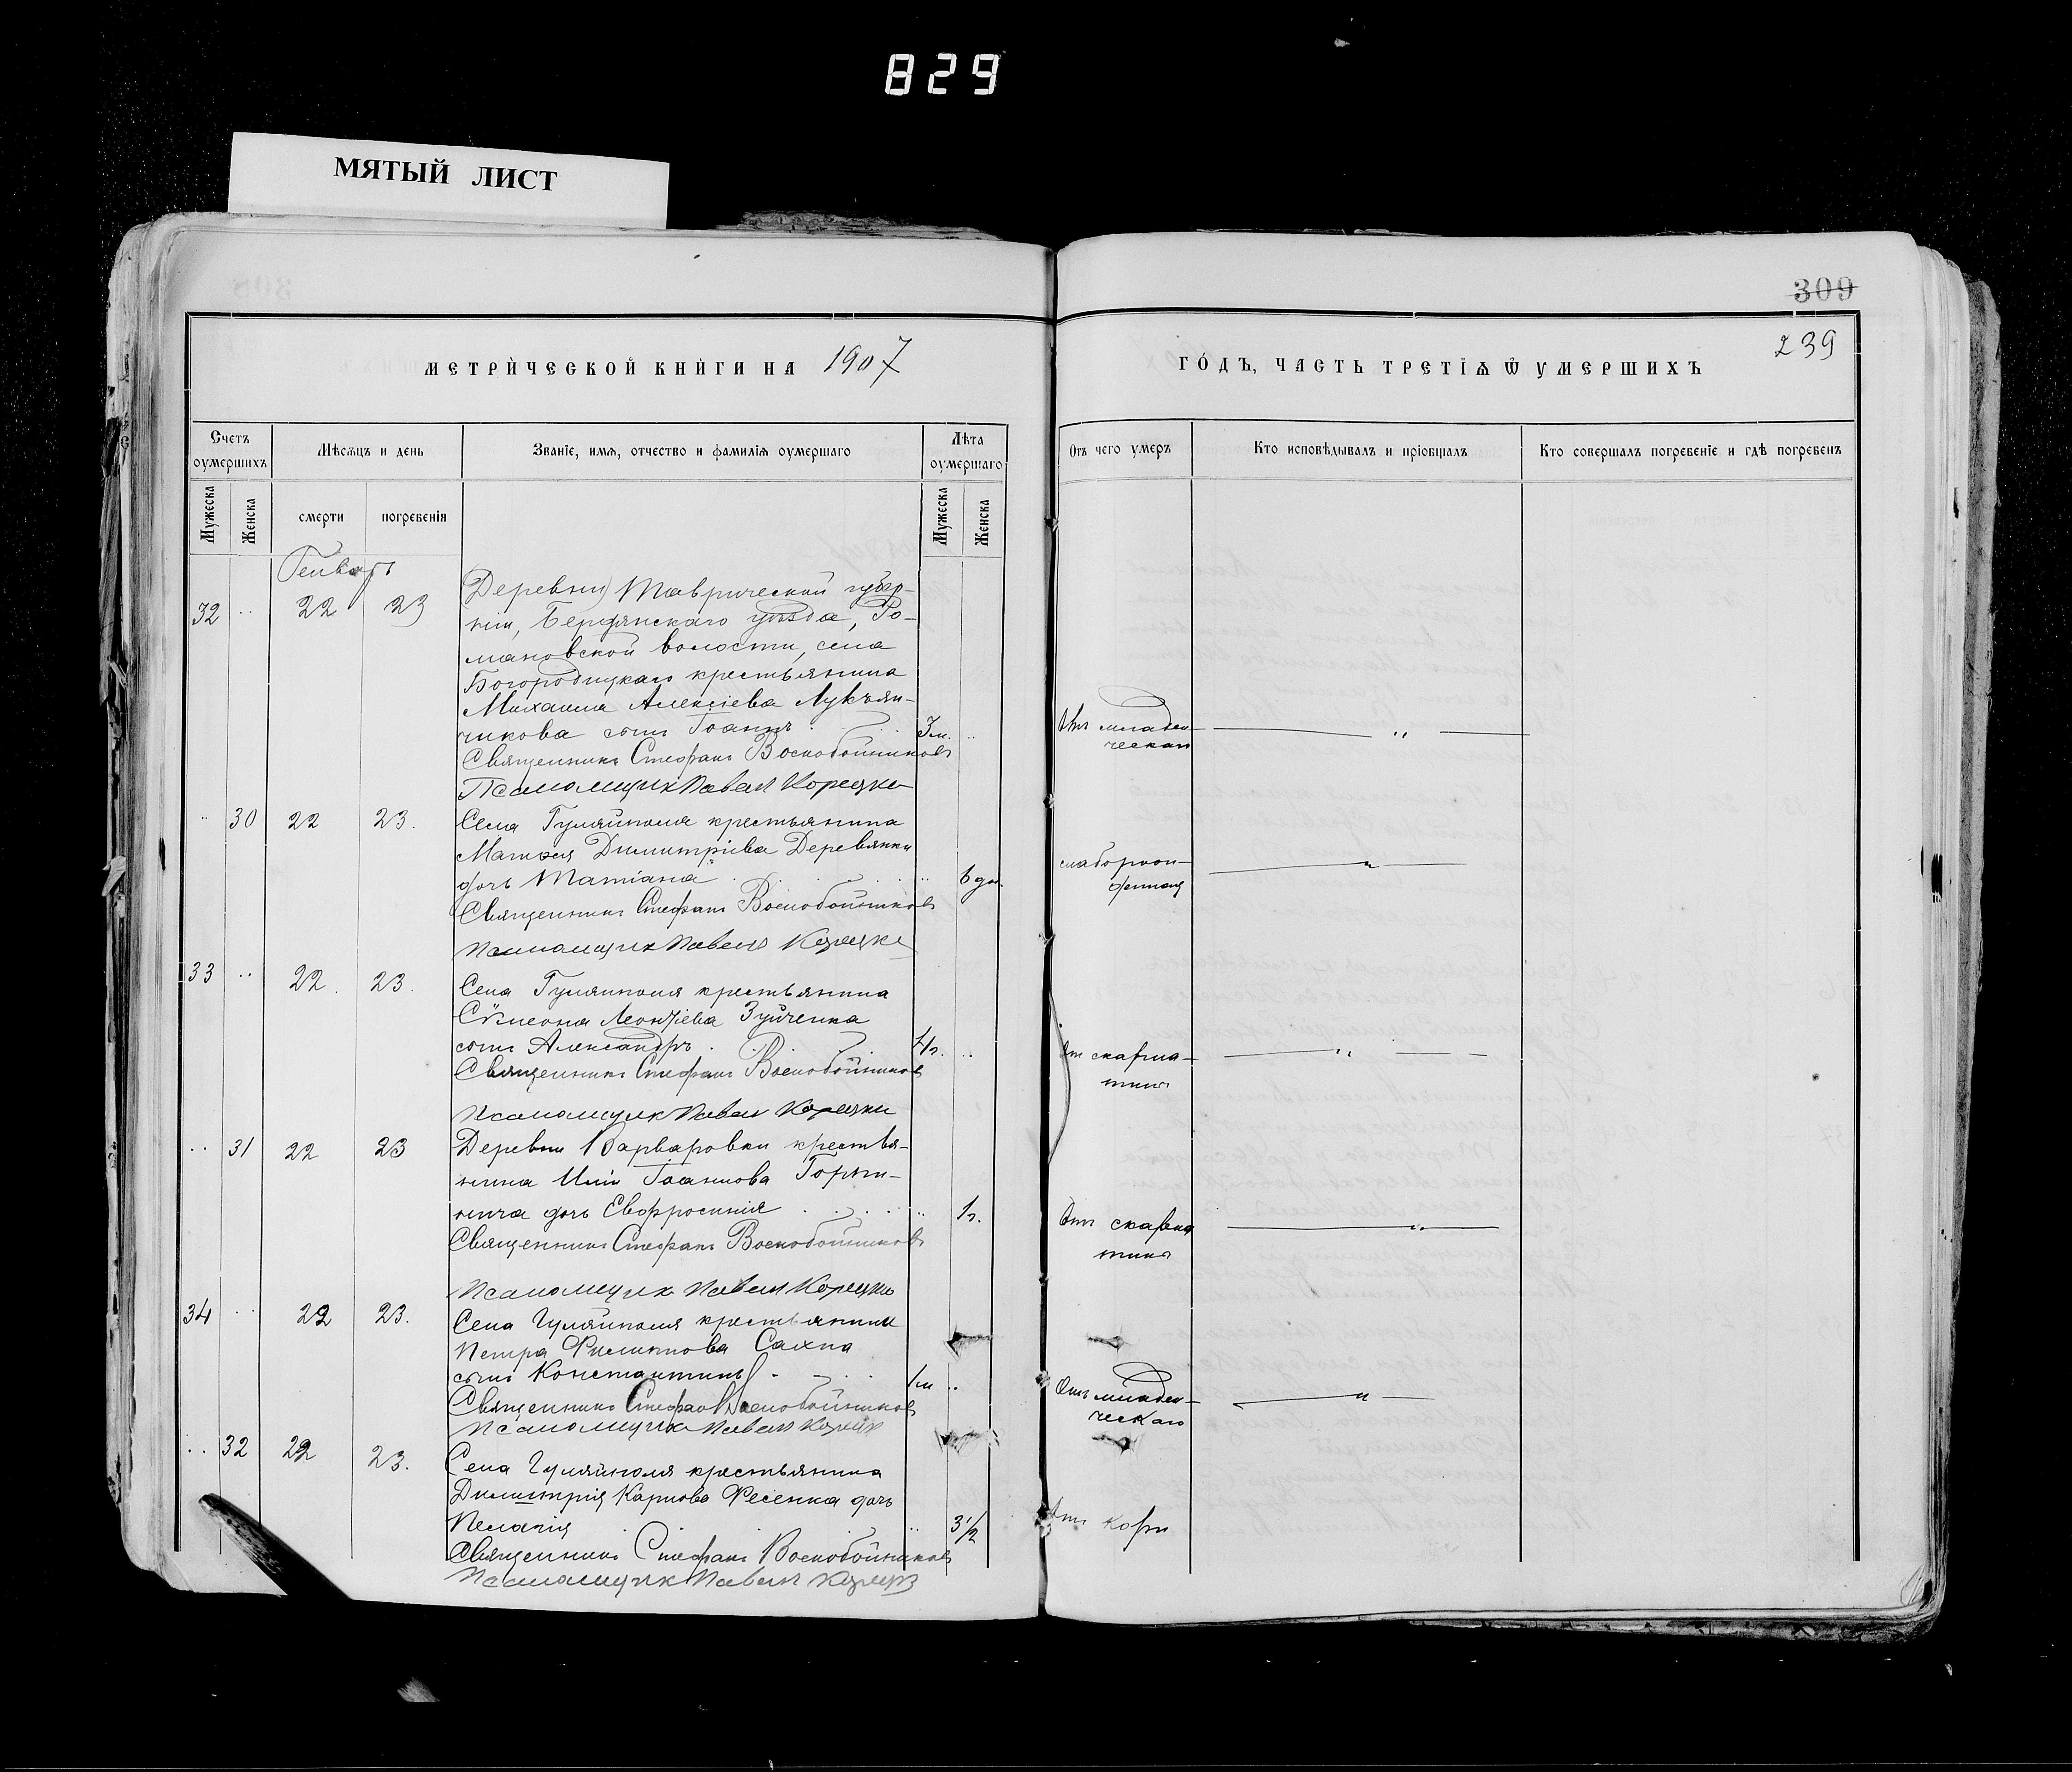 829
МЯТЫЙ ЛИСТ
309
239
МЕТРИЧЕСКОЙ КНИГИ НА 1907
ГОДЪ, ЧАСТЬ ТРЕТІЯ Ѿ УМЕРШИХЪ
Счетъ оумершихъ
Мѣсяцъ и день
Званіе, имя, отчество и фамилія оумершаго
Лѣта оумершаго
Отъ чего умеръ
Кто исповѣдывалъ и пріобщалъ
Кто совершалъ погребеніе и гдѣ погребенъ
Мужеска
Женска
смерти
погребенія
Мужеска
Женска
Генварь
32 .. 22 23
Деревни) Таврической губер-
ніи, Бердянскаго уѣзда, Ро-
мановской волости, села
Богородицкаго крестьянина
Михаила Алексіева Лукьян-
чикова сынъ Іоаннъ . . . 3м. ..
Отъ младен-
ческаго
Священникъ Стефанъ Воскобойниковъ
Псаломщик Павел Корецки
.. 30 22 23.
Села Гуляйполя крестьянина
Матѳея Димитріева Деревянки
дочь Татіана . . . . .. 6 дн.
слаборож-
денная
Священникъ Стефанъ Воскобойниковъ
Псаломщик Павел Корецки
33 .. 22. 23.
Села Гуляйполя крестьянина
Сѵмеона Леонтіева Зуйченка
сынъ Александръ . . . 4г. ..
От скарла-
тины
Священникъ Стефанъ Воскобойниковъ
Псаломщик Павел Корецки
.. 31 22 23
Деревни Варваровки крестья-
нина Иліи Іоаннова Горяи-
нича дочь Евфросинія . . . .. 1г.
Отъ скарла
тины
Священникъ Стефанъ Воскобойниковъ
Псаломщик Павел Корецки
34 .. 22 23.
Села Гуляйполя крестьянина
Петра Филиппова Сахна
сынъ Константинъ . - . . 1м ..
Отъ младен-
ческаго
Священникъ Стефанъ Воскобойниковъ
Псаломщик Павел Корец
.. 32 22 23.
Села Гуляйполя крестьянина
Димитрія Карпова Фесенка дочь
Пелагія . . . .. 3 1/2
Отъ кори
Священникъ Стефанъ Воскобойниковъ
Псаломщик Павел Корец